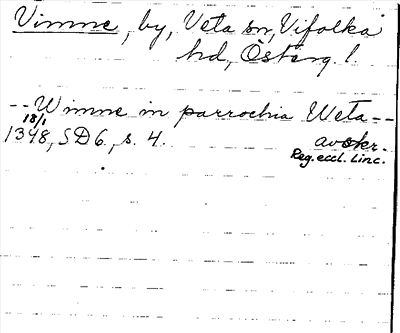 Vimne, by, Veta sn, Vifolka
hd, Österg. l.
-- Wimne in parrochia Weta --
18/1
1348, SD6, s. 4. avskr.
Reg. eccl. Linc.